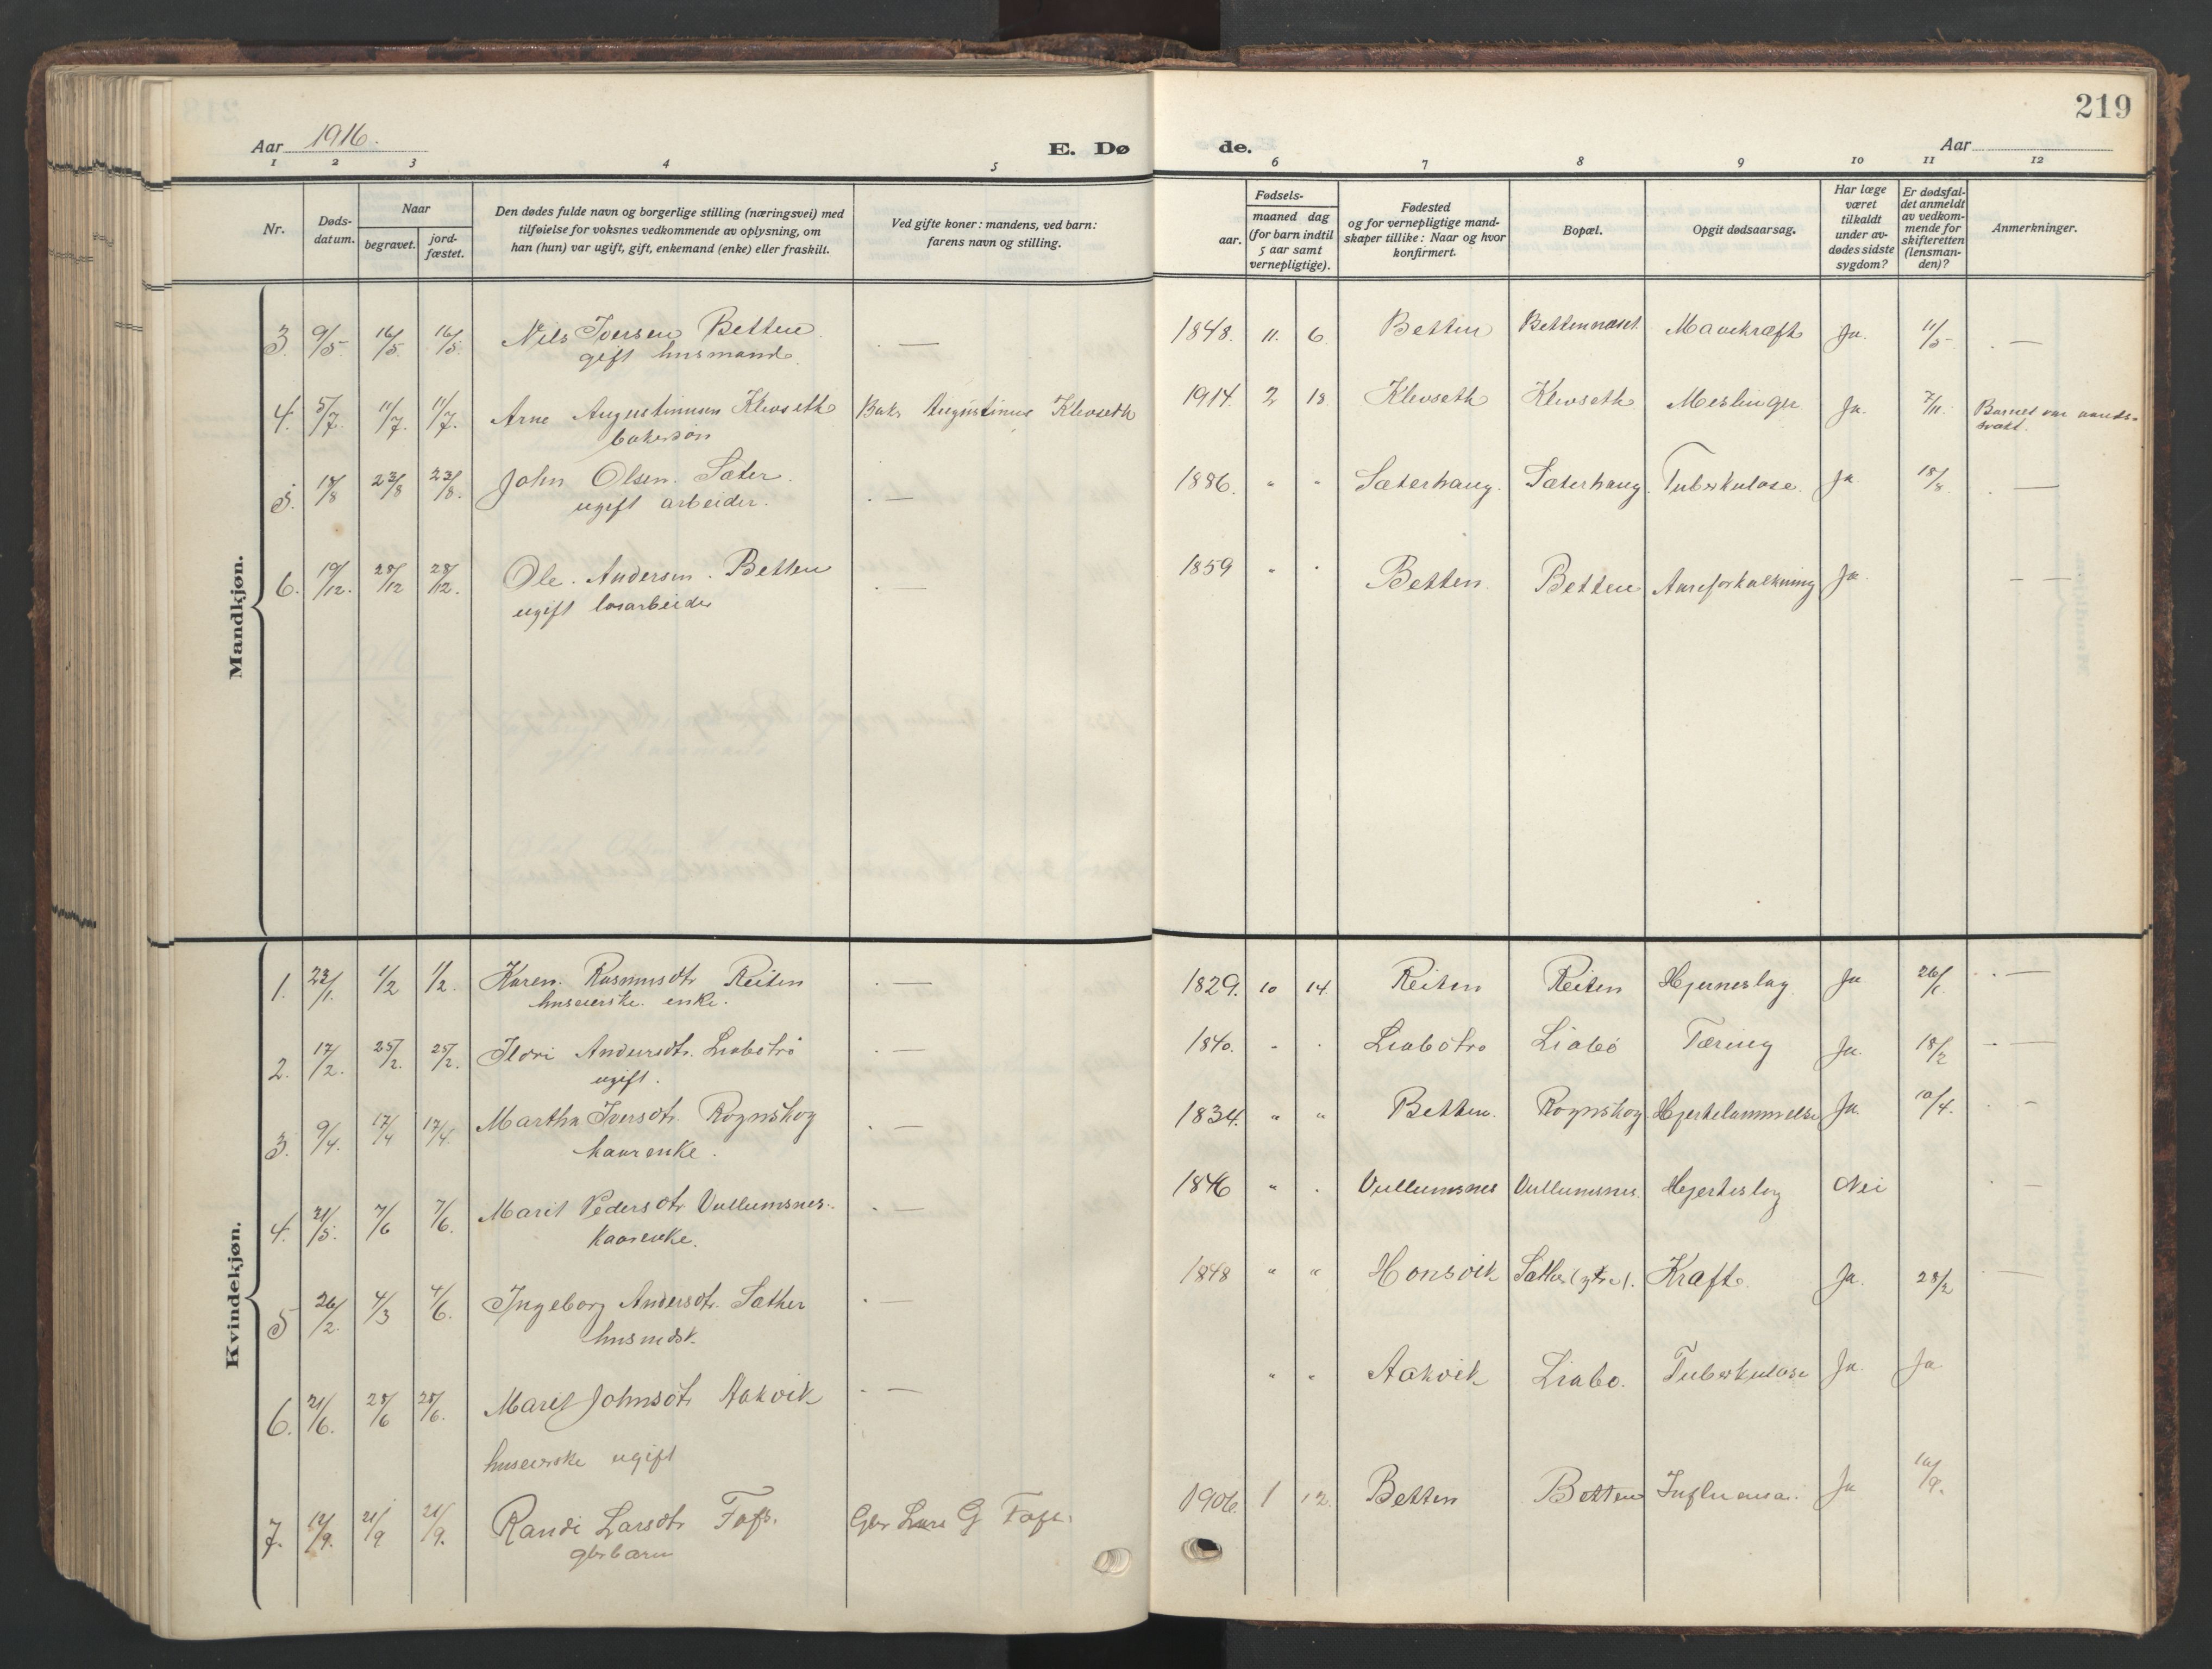 219
Aar 1916.
E. Dø
de.
Aar
1 2 3 4 5 6 7 8 9 10 11 12
Nr.
Døds-
datum.
Naar
begravet.
jord-
fæstet.
Den dødes fulde navn og borgerlige stilling (næringsvei) med
tilføielse for voksnes vedkommende av oplysning, om
han (hun) var ugift, gift, enkemand (enke) eller fraskilt.
Ved gifte koner: mandens, ved barn:
farens navn og stilling.
Fødsels-
aar.
maaned dag
(for barn indtil
5 aar samt
vernepligtige).
Fødested
og for vernepligtige mand-
skaper tillike: Naar og hvor
konfirmert.
Bopæl.
Opgit dødsaarsag.
Har læge
været
tilkaldt
under av-
dødes sidste
sygdom?
Er dødsfal-
det anmeldt
av vedkom-
mende for
skifteretten
(lensman-
den)?
Anmerkninger.
Mandkjøn.
3. 9/5. 16/5. 16/5. Nils Iversen Betten. — 1848. 11. 6. Betten Bettennæset Mavekræft Ja. 11/5 —
gift husmand.
4. 5/7. 11/7. 11/7. Arne Augustinusen Klevseth Bakr Augustinus Klevseth 1914. 2 13. Klevseth Klevseth Meslinger Ja. 7/11. Barnet var aands-
bakersøn svakt.
5. 18/8 23/8 23/8. John Olsen. Sæter. — 1886. " " Sæterhaug. Sæterhaug. Tuberkulose. Ja. 18/8. —
ugift arbeider.
6. 19/12. 28/12 28/12. Ole. Andersen. Betten — 1859 " " Betten. Betten Aareforkalkning Ja. — —
ugift løsarbeider
Kvindekjøn.
1. 23/1. 1/2 1/2. Karen. Rasmusdtr Reiten — 1829. 10 14. Reiten Reiten Hjerneslag. Ja 26/1. —
huseierske. enke.
2. 17/2. 25/2. 25/2. Ildri Andersdtr. Liabötrö — 1840. " " Liabötrö Liabö Tæring Ja. 18/2 —
ugift.
3. 9/4. 17/4 17/4. Martha Iversdtr Rognskog — 1834. " " Betten. Rognskog. Hjertelammelse Ja. 10/4. —
kaarenke.
4. 31/5. 7/6 7/6. Marit Pedersdtr Vullumsnes. — 1846 " " Vullumsnes Vullumsnes. Hjerteslag Nei —
Kaarenke.
5 26/2. 4/3 4/6. Ingeborg Andersdtr. Sæther — 1848 " " Honsvik Sæther (ytre). Kræft. Ja. 28/2 —
husmdsk.
6. 21/6. 28/6 28/6. Marit Johnsdtr Aakvik — " " Aakvik Liabø. Tuberkulose Ja. Ja.
huseierske ugift
7. 12/9. 21/9 21/9. Randi Larsdtr Toft. Gbr Lars G Toft. 1906. 1 12. Betten Betten Influensa. Ja 16/9.
gbrbarn